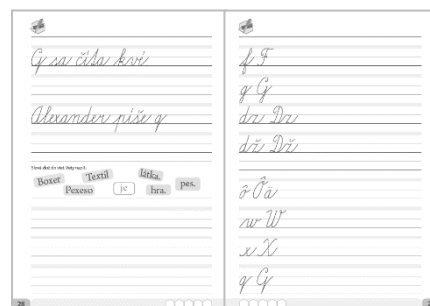 Q sa číta kvé
Alexander píše q
Boxer Textil látka.
Pexeso je hra. pes.
28
f F
g G
dz Dz
dž Dž
ô Ô ä
w W
x X
q Q